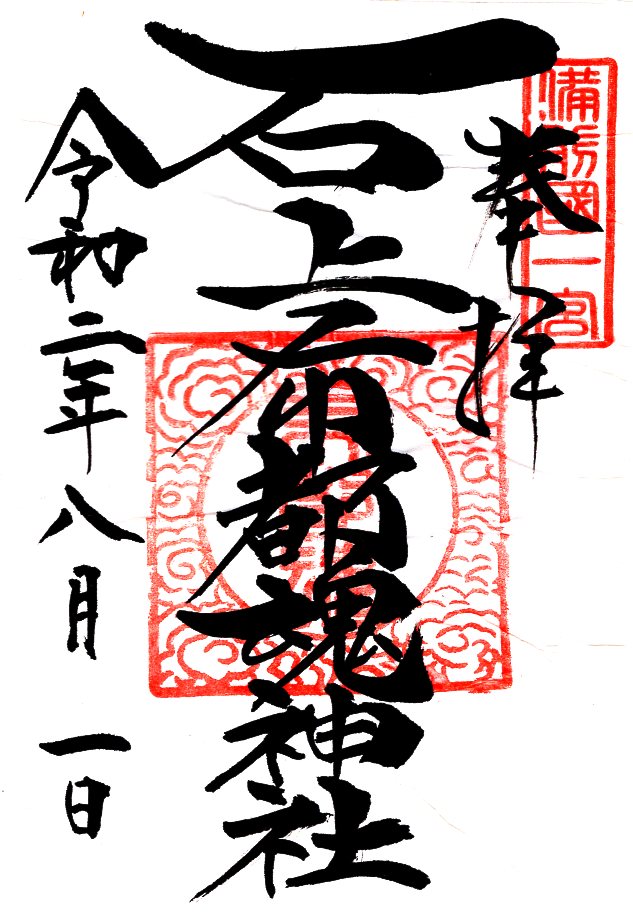 備前國一宮
奉拝
石上布都魂神社
令和二年八月一日